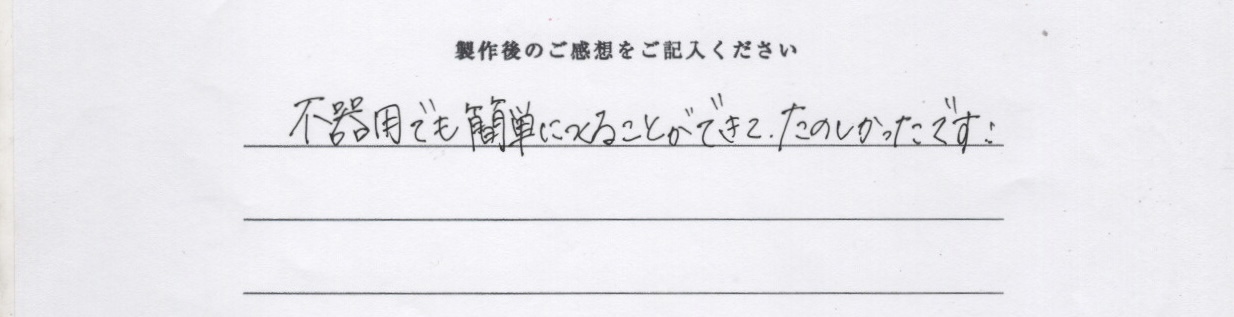 製作後のご感想をご記入ください
不器用でも簡単につくることができて、たのしかったです!